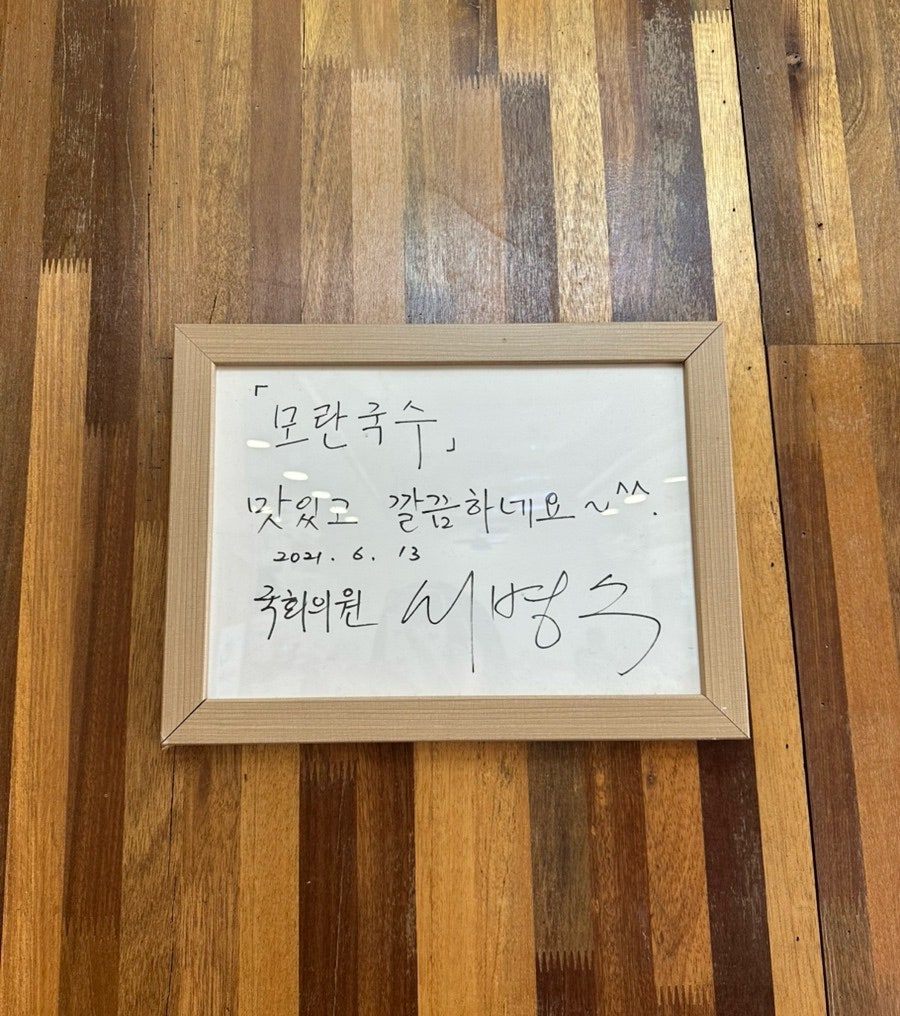 「모란국수」
맛있고 깔끔하네요~^^.
2021. 6. 13
국회의원 서병수